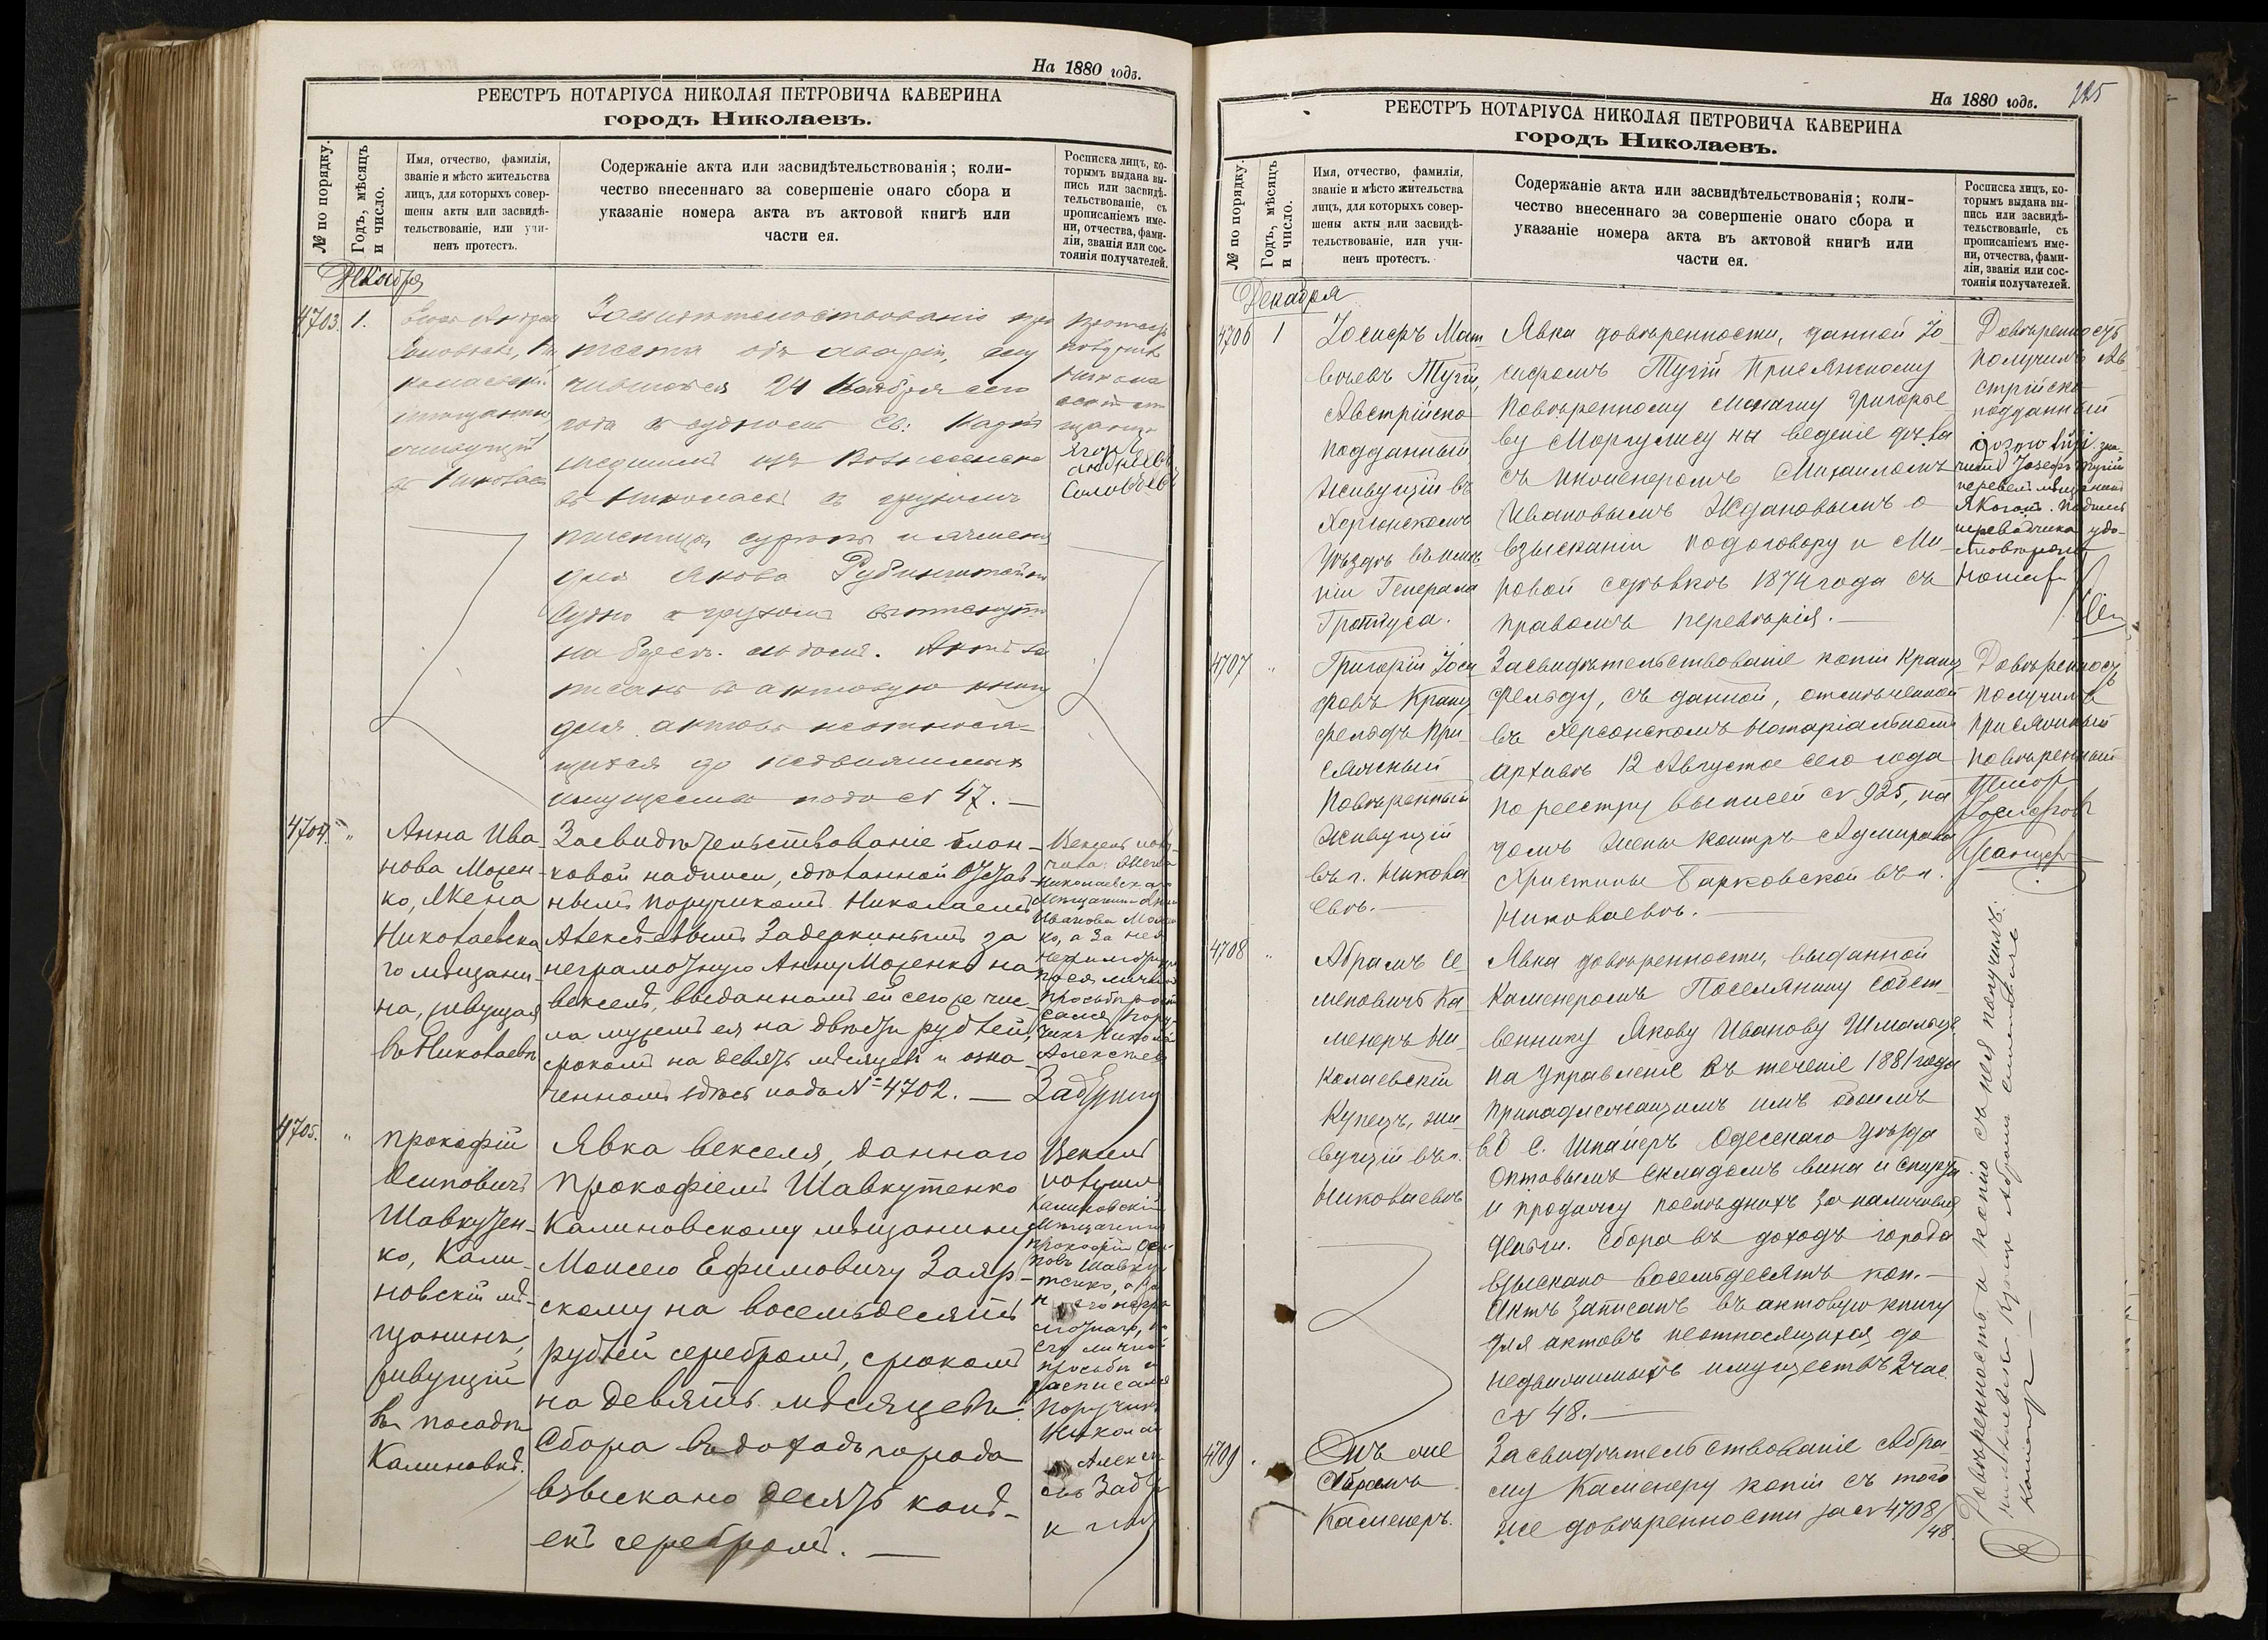 На 1880 годъ.
РЕЕСТРЪ НОТАРІУСА НИКОЛАЯ ПЕТРОВИЧА КАВЕРИНА
городъ Николаевъ.
№ по порядку.
Годъ, мѣсяцъ
и число.
Имя, отчество, фамилія,
званіе и мѣсто жительства
лицъ, для которыхъ совер-
шены акты или засвидѣ-
тельствованіе, или учи-
ненъ протестъ.
Содержаніе акта или засвидѣтельствованія; коли-
чество внесеннаго за совершеніе онаго сбора и
указаніе номера акта въ актовой книгѣ или
части ея.
Росписка лицъ, ко-
торымъ выдана вы-
пись или засвидѣ-
тельствованіе, съ
прописаніемъ име-
ни, отчества, фами-
ліи, званія или сос-
тоянія получателей.
Декабря
4703. 1.
въ Николаев
Засвидѣтельствованіе про
теста объ аваріи, слу
чившейся 24 Ноября сего
года съ судномъ Св:
шедшимъ изъ Вознесенска
въ Николаевъ съ грузомъ
пшеницы сурѣпы и ячменя
для Якова Рубинштейна
Судно съ грузомъ
на берегъ льдомъ. Актъ за
писанъ въ актовую книгу
для актовъ неотнося-
щихся до недвижимыхъ
имуществъ подъ № 47. —
Егоръ
Андреевъ
Соловьевъ
4704. "
Анна Ива
нова Мозен-
ко, жена
Николаевска
го мѣщани-
на, живущая
въ Николаевѣ
Засвидѣтельствованіе блан-
ковой надписи, сдѣланной отстав-
нымъ поручикомъ Николаемъ
Алексѣевымъ Задеркинымъ за
неграмотную Анну Мозенко на
векселѣ, выданномъ ей сего же чис-
ла мужемъ ея на двѣсти рублей,
срокомъ на девять мѣсяцевъ и озна-
ченномъ здѣсь подъ № 4702. —
4705. "
Прокофій
Осиповичъ
Шавкутен-
ко, Кали-
новскій мѣ-
щанинъ,
живущій
въ посадѣ
Калиновкѣ.
Явка векселя, даннаго
Прокофіемъ Шавкутенко
Калиновскому мѣщанину
Моисею Ефимовичу Заяр-
скому на восемьдесятъ
рублей серебромъ, срокомъ
на девять мѣсяцевъ.
Сбора въ доходъ города
взыскано десять копѣ-
екъ серебромъ. —
Вексель
получилъ
Калиновскій
мѣщанинъ
Прокофій Оси-
повъ Шавку
тенко, а за
его личной
просьбѣ
росписался
Поручикъ
Николай
На 1880 годъ.
225
РЕЕСТРЪ НОТАРІУСА НИКОЛАЯ ПЕТРОВИЧА КАВЕРИНА
городъ Николаевъ.
№ по порядку.
Годъ, мѣсяцъ
и число.
Имя, отчество, фамилія,
званіе и мѣсто жительства
лицъ, для которыхъ совер-
шены акты или засвидѣ-
тельствованіе, или учи-
ненъ протестъ.
Содержаніе акта или засвидѣтельствованія; коли-
чество внесеннаго за совершеніе онаго сбора и
указаніе номера акта въ актовой книгѣ или
части ея.
Росписка лицъ, ко-
торымъ выдана вы-
пись или засвидѣ-
тельствованіе, съ
прописаніемъ име-
ни, отчества, фами-
ліи, званія или сос-
тоянія получателей.
Декабря
4706 1
Іосифъ Мат
вѣевъ Тугій,
Австрійско
подданный
живущій въ
Херсонскомъ
уѣздѣ въ имѣ
ніи Генерала
Гроттуса.
Явка довѣренности, данной Іо
сифомъ Тугій Присяжному
Повѣренному Менагиу Григорье
ву Моргулису на веденіе дѣла
съ инженеромъ Михаиломъ
Ивановымъ Ждановымъ о
взысканіи подоговору и Ми-
ровой сдѣлкѣ 1874 года съ
правомъ передовѣрія. —
Довѣренность
получилъ Ав
стрійско
подданный
4707 "
Григорій Іоси
фовъ Кранц
фельдъ При-
сяжный
Повѣренный
живущій
въ г. Никола
евѣ. —
Засвидѣтельствованіе копіи Кранц
фельду, съ данной, отмѣченной
въ Херсонскомъ Нотаріальномъ
архивѣ 12 Августа сего года
по реестру выписей № 925, на
домъ жены контръ Адмирала
Христины Барковской въ г.
Николаевѣ. —
Довѣренность
получилъ
присяжный
повѣренный
4708 "
Абрамъ Се-
меновичъ Ка-
менеръ Ни-
колаевскій
Купецъ, жи-
вущій въ г.
Николаевѣ
Явка довѣренности, выданной
Каменеромъ Поселянину собст-
веннику Якову Иванову Шмальцъ
на управленіе въ теченіе 1881 года
принадлежащимъ имъ обоимъ
въ с. Шпайеръ Одесскаго уѣзда
Оптовымъ складомъ вина и спирта
и продажу послѣднихъ за наличныя
деньги. Сбора въ доходъ города
взыскано восемьдесятъ коп. —
Актъ записанъ въ актовую книгу
для актовъ неотносящихся до
недвижимыхъ имуществъ 2 час.
№ 48. —
4709 "
Онъ же
Абрамъ
Каменеръ.
Засвидѣтельствованіе Абра-
му Каменеру копіи съ той
же довѣренности за № 4708/48.
Довѣренность и копію съ нея получилъ:
николаевскій Купецъ Абрамъ Семеновичъ
Каменеръ —